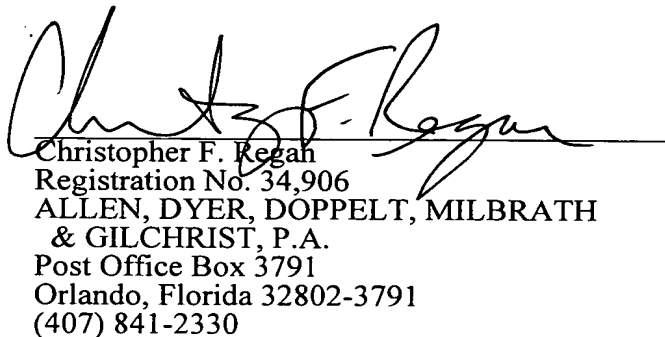 Christopher F. Regan
Christopher F. Regan
Registration No. 34,906
ALLEN, DYER, DOPPELT, MILBRATH
& GILCHRIST, P.A.
Post Office Box 3791
Orlando, Florida 32802-3791
(407) 841-2330